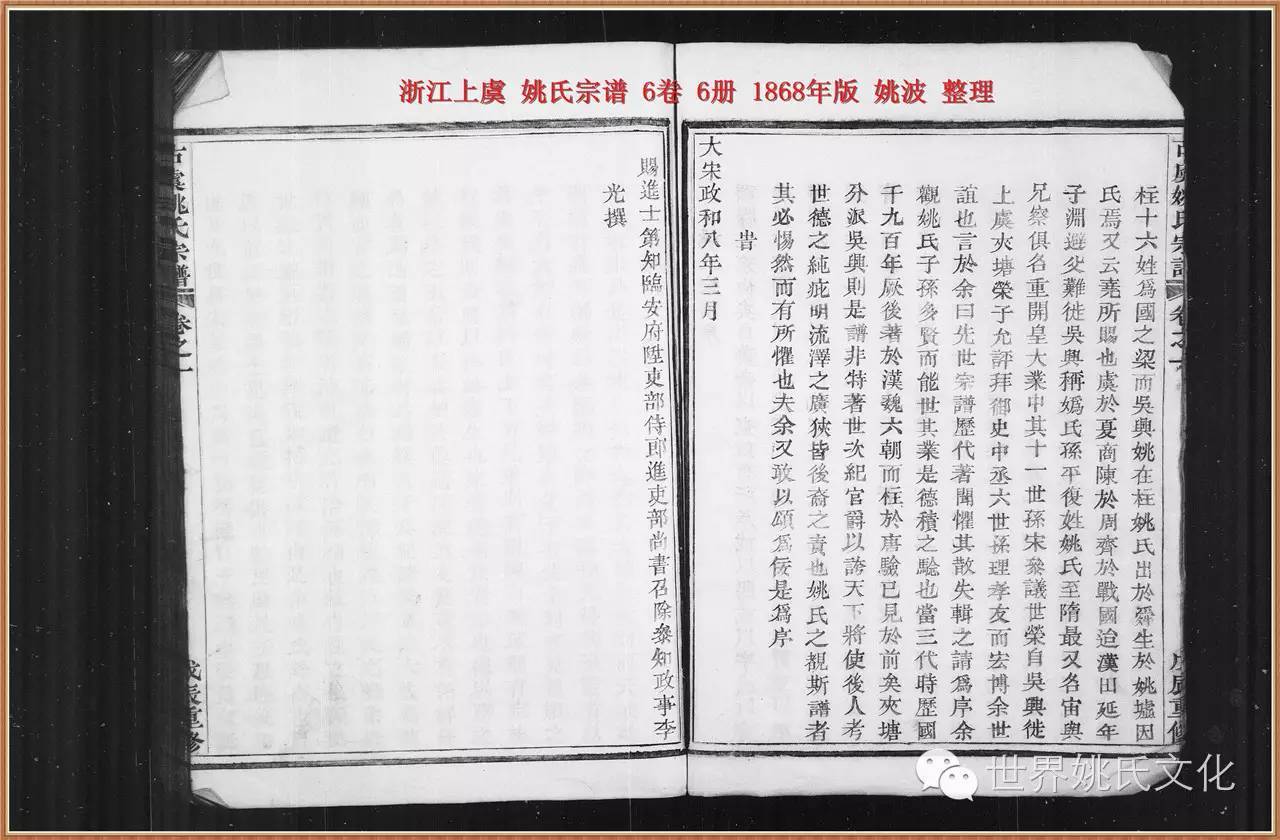 浙江上虞 姚氏宗谱 6卷 6册 1868年版 姚波 整理
柱十六姓爲國之梁而吳興姚在柱姚氏出於舜生於姚墟因
氏焉又云堯所賜也虞於夏商陳於周齊於戰國迨漢田延年
子淵避父難徙吳興稱嬀氏孫平復姓姚氏至隋最又名宙與
兄察俱名重開皇大業中其十一世孫宋叅議世榮自吳興徙
上虞夾塘榮子允評拜御史中丞六世孫理孝友而宏博余世
誼也言於余曰先世宗譜歷代著聞懼其散失輯之請爲序余
觀姚氏子孫多賢而能世其業是德積之驗也當三代時歷國
千九百年厥後著於漢魏六朝而柱於唐驗已見於前矣夾塘
分派吳興則是譜非特著世次紀官爵以誇天下將使後人考
世德之純疵明流澤之廣狹皆後裔之責也姚氏之覩斯譜者
其必惕然而有所懼也夫余又敢以頌爲佞是爲序
旹
大宋政和八年三月
賜進士第知臨安府陞吏部侍郎進吏部尚書召除叅知政事李
光撰
古虞姚氏宗譜 卷之一
戊辰重修
世界姚氏文化